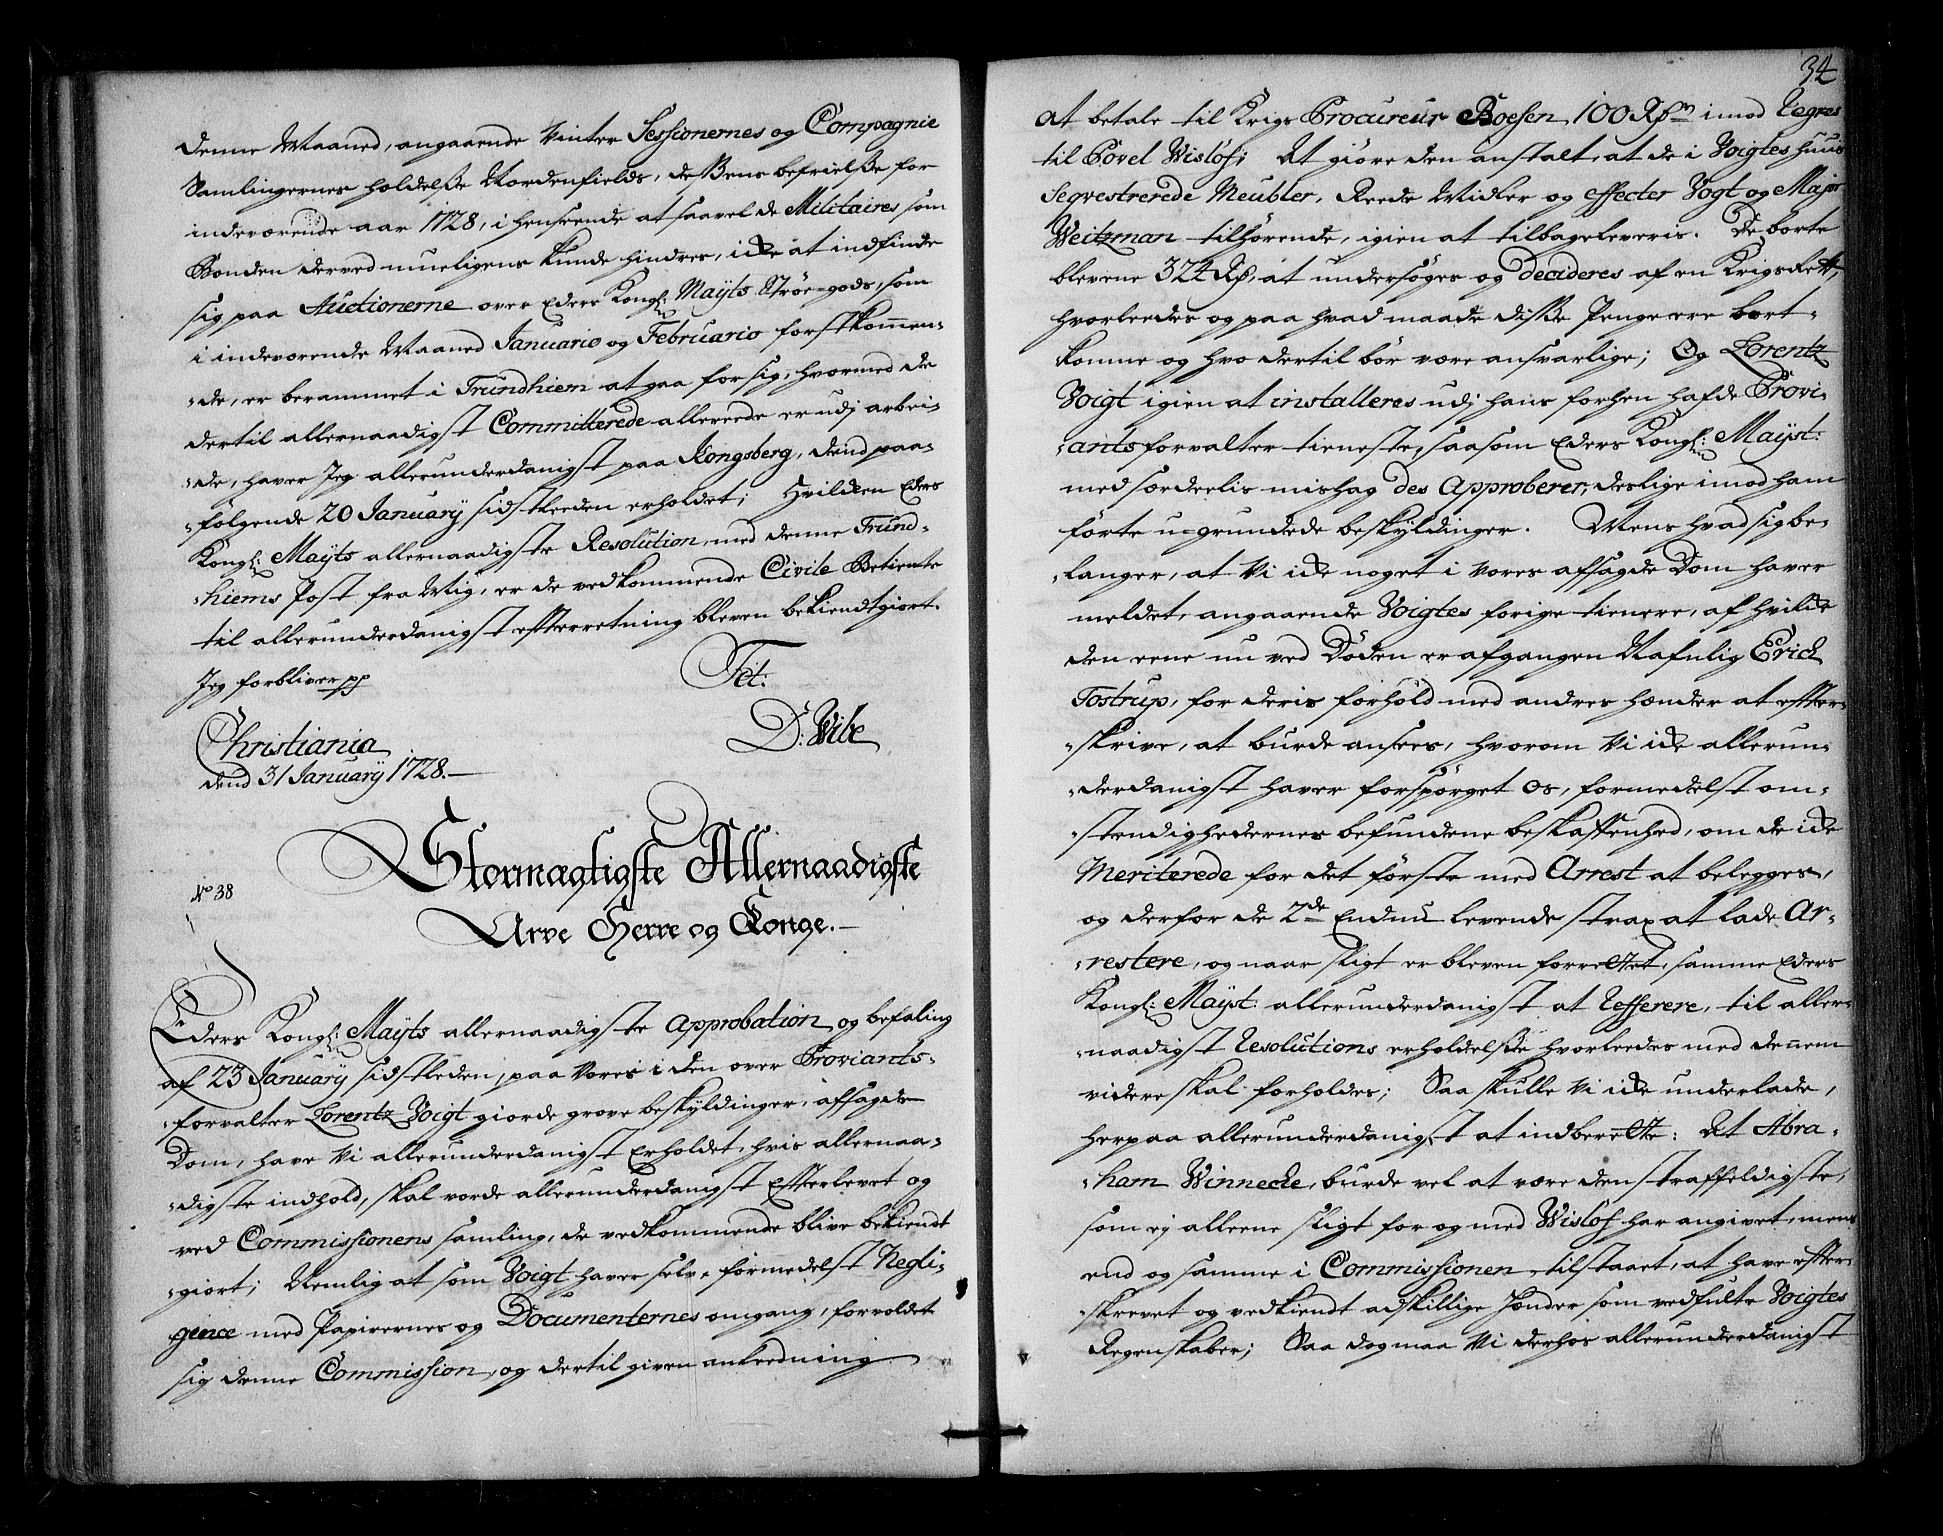 denne Maaned, angaaende Vinter Sessionernes og Compagnie
Samlingernes holdelsse Nordenfields, dessens befrielsse for
indeværende aar 1728, i henseende at saavel de Militaires som
Bonden derved mueligens kunde hindres, icke at indfinde
sig paa Auctionerne over Eders Kongl: Mayts Strøe-gods, som
i indeværende Maaned Januario og Februario førstkommen-
-de, er berammet i Trundhiem at gaa for sig, hvormed de
dertil allernaadigst Committerede allereede er udj arbei-
-de, haver Jeg allerunderdanigst paa Kongsberg, dend paa-
-følgende 20 January sidstleeden erholdet; Hvilcken Eders
Kongl: Mayts allernaadigste Resolution, med denne Trund-
-hiems Post fra Mig, er de vedkommende Civile Betiente
til allerunderdanigst effterretning bleven bekiendtgiort.
Jeg forbliver pp
Fet:
D: Wibe
Christiania
dend 31 January 1728.
No 38
Stormægtigste Allernaadigste
Arve Herre og Konge.
Eders Kongl: Mayts allernaadigste Approbation og befaling
af 23 January sidstleden, paa Vores i den over Proviants-
-forvalter Lorentz Voigt giorde grove beskyldinger, affsagde
Dom, have Vi allerunderdanigst Erholdet, hvis allernaa-
-digste indhold, skal vorde allerunderdanigst Effterlevet og
ved Commissionens samling, de vedkommende blive bekiendt
-giort; Nemlig at som Voigt haver selv, formedelst Negli-
gence med Papirernes og Documenternes omgang, forvoldet
sig denne Commission, og dertil given anleedning
34
at betale til Krigs Procureur Boesen 100 Rdr imod Regres
til Povel Wisløf; At giøre den anstalt, at de i Voigtes huus
Seqvestrerede Meubler, Reede Midler og effecter Vogt og Major
Weitzman tilhørende, igien at tilbageleveris. De borte
blevene 324 Rd, at undersøges og decideres af en Krigs Rett,
hvorleedes og paa hvad maade disse Penge ere bort-
komne og hvo dertil bør være ansvarlige; Og Lorentz
Voigt igien at installeres udj hans forhen hafde Provi-
-antsforvalter tieneste, saasom Eders Kongl: Mayst:
med særdeelis mishag des Approberer, deslige imod ham
førte u-grundede beskyldinger. Mens hvad sig be-
-langer, at Vi icke noget i Vores affsagde Dom haver
meldet, angaaende Voigtes forige tienere, af hvilcke
den eene nu ved Døden er afgangen Nafnlig Erich
Tostrup, for deris forhold med andres hænder at effter-
-skrive, at burde ansees, hvorom Vi icke allerun-
-derdanigst haver forspørget Os, formedelst om-
-stendighedernes befundene beskaffenhed, om de icke
Meriterede for det første med Arrest at belegges,
og derfor de 2de Endnu levende strax at lade Ar-
-restere, og naar sligt er bleven forrettet, samme Eders
Kongl: Mayst: allerunderdanigst at Refferere, til aller-
-naadigst Resolutions erholdelsse hvorleedes med dennem
videre skal forholdes; Saa skulle Vi icke underlade,
herpaa allerunderdanigst at indberette: At Abra-
-ham Winnecke, burde vel at være den straffeldigste,
som ej alleene sligt for og med Wisløf har angivet, mens
end og samme i Commissionen tilstaaet, at have effter-
-skrevet og vedkiendt adskillige hænder som vedfulte Voigtes
Regenskaber; Saa dog maa Vi derhos allerunderdanigst